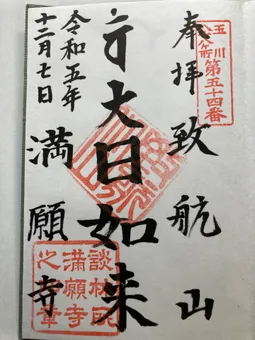 玉川
第五十四番
奉拝 致航山
大日如来
令和五年
十二月七日
満願寺
談林所
満願寺
之章